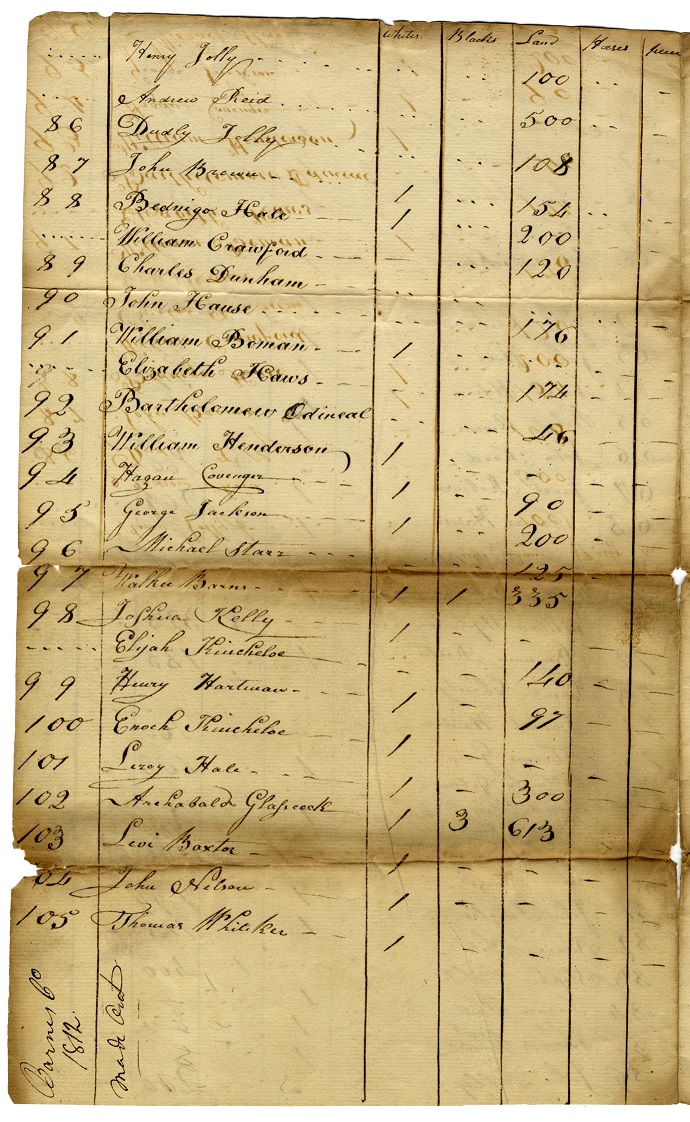 Whites Blacks Land Horses
Henry Jolly 100
Andrew Reid 500
86 Dudly Jolly
87 John Brown 108
88 Bednigo Hale 1 154
William Crawford 1 200
89 Charles Dunham 120
90 John Hause
91 William Boman 1 176
Elizabeth Haws
92 Bartholomew Odineal 174
93 William Henderson 1 46
94 Hagan Covenger 1
95 George Jackson 1 90
96 Michael Starr 200
125
97 Walker Barns 1 1 335
98 Joshua Kelly 1
Elijah Kincheloe
99 Henry Hartman 1 140
100 Enoch Kincheloe 1 97
101 Leroy Hale 1
102 Archabald Glasscock 300
1 3 613
103 Levi Baxtor 1
04 John Nelson 1
105 Thomas Whiteker 1
Barnes Co
1812.
Made Out